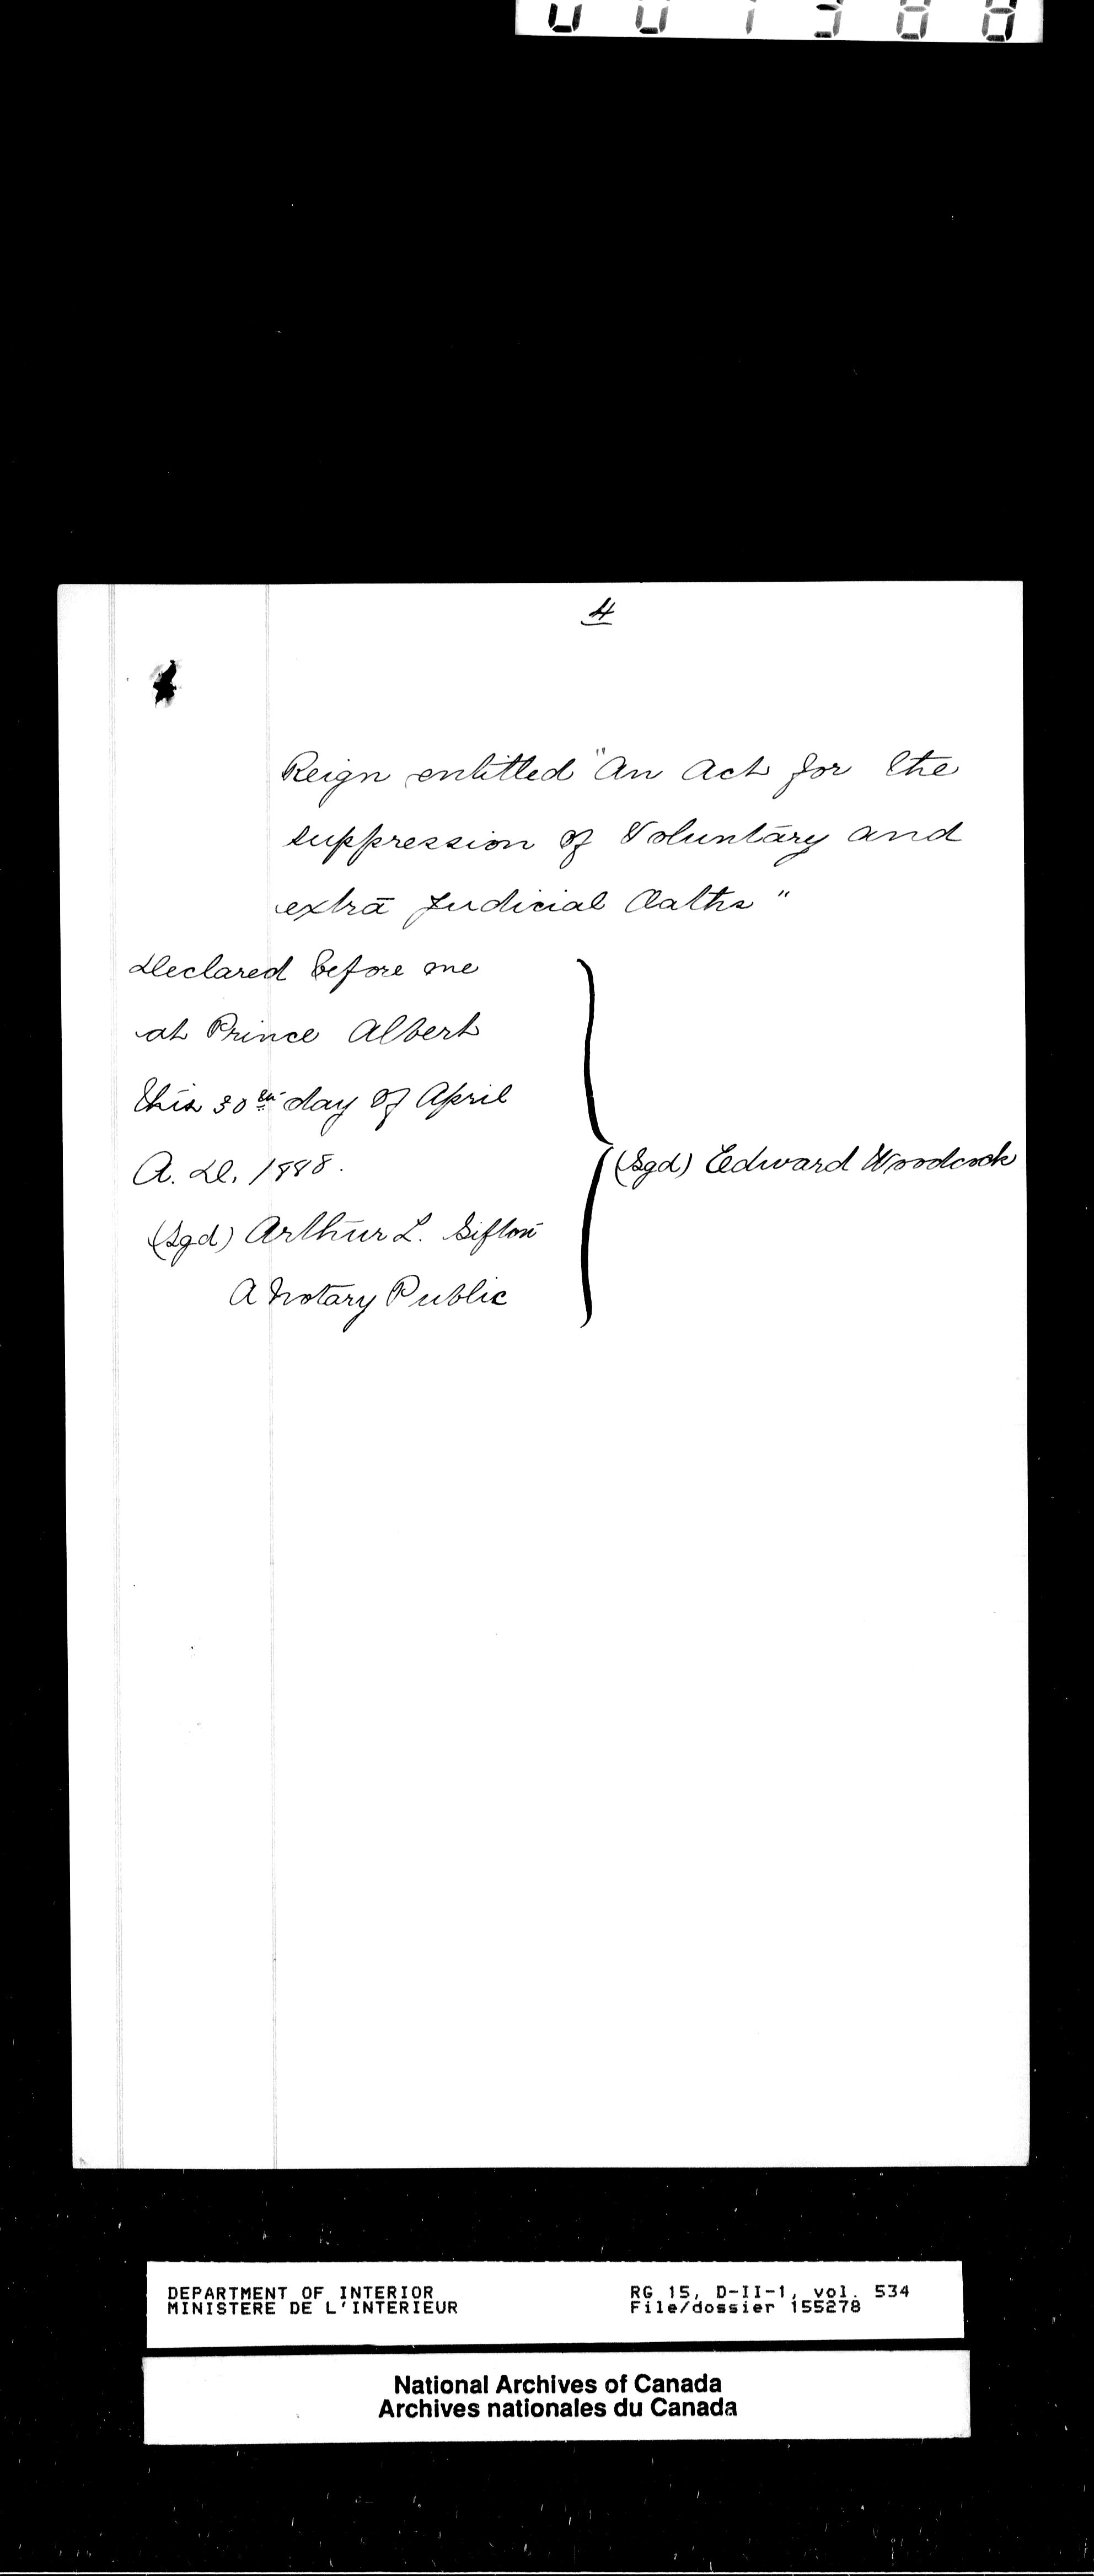 4
Reign entitled "An Act for the
suppression of Voluntary and
extra Judicial Oaths"
Declared before me
at Prince Albert
this 30th day of April
A. D. 1888.
(Sgd) Edward Woodcock
(Sgd) Arthur L. Sifton
A Notary Public
DEPARTMENT OF INTERIOR
MINISTERE DE L'INTERIEUR
RG 15, D-II-1, vol. 534
File/dossier 155278
National Archives of Canada
Archives nationales du Canada